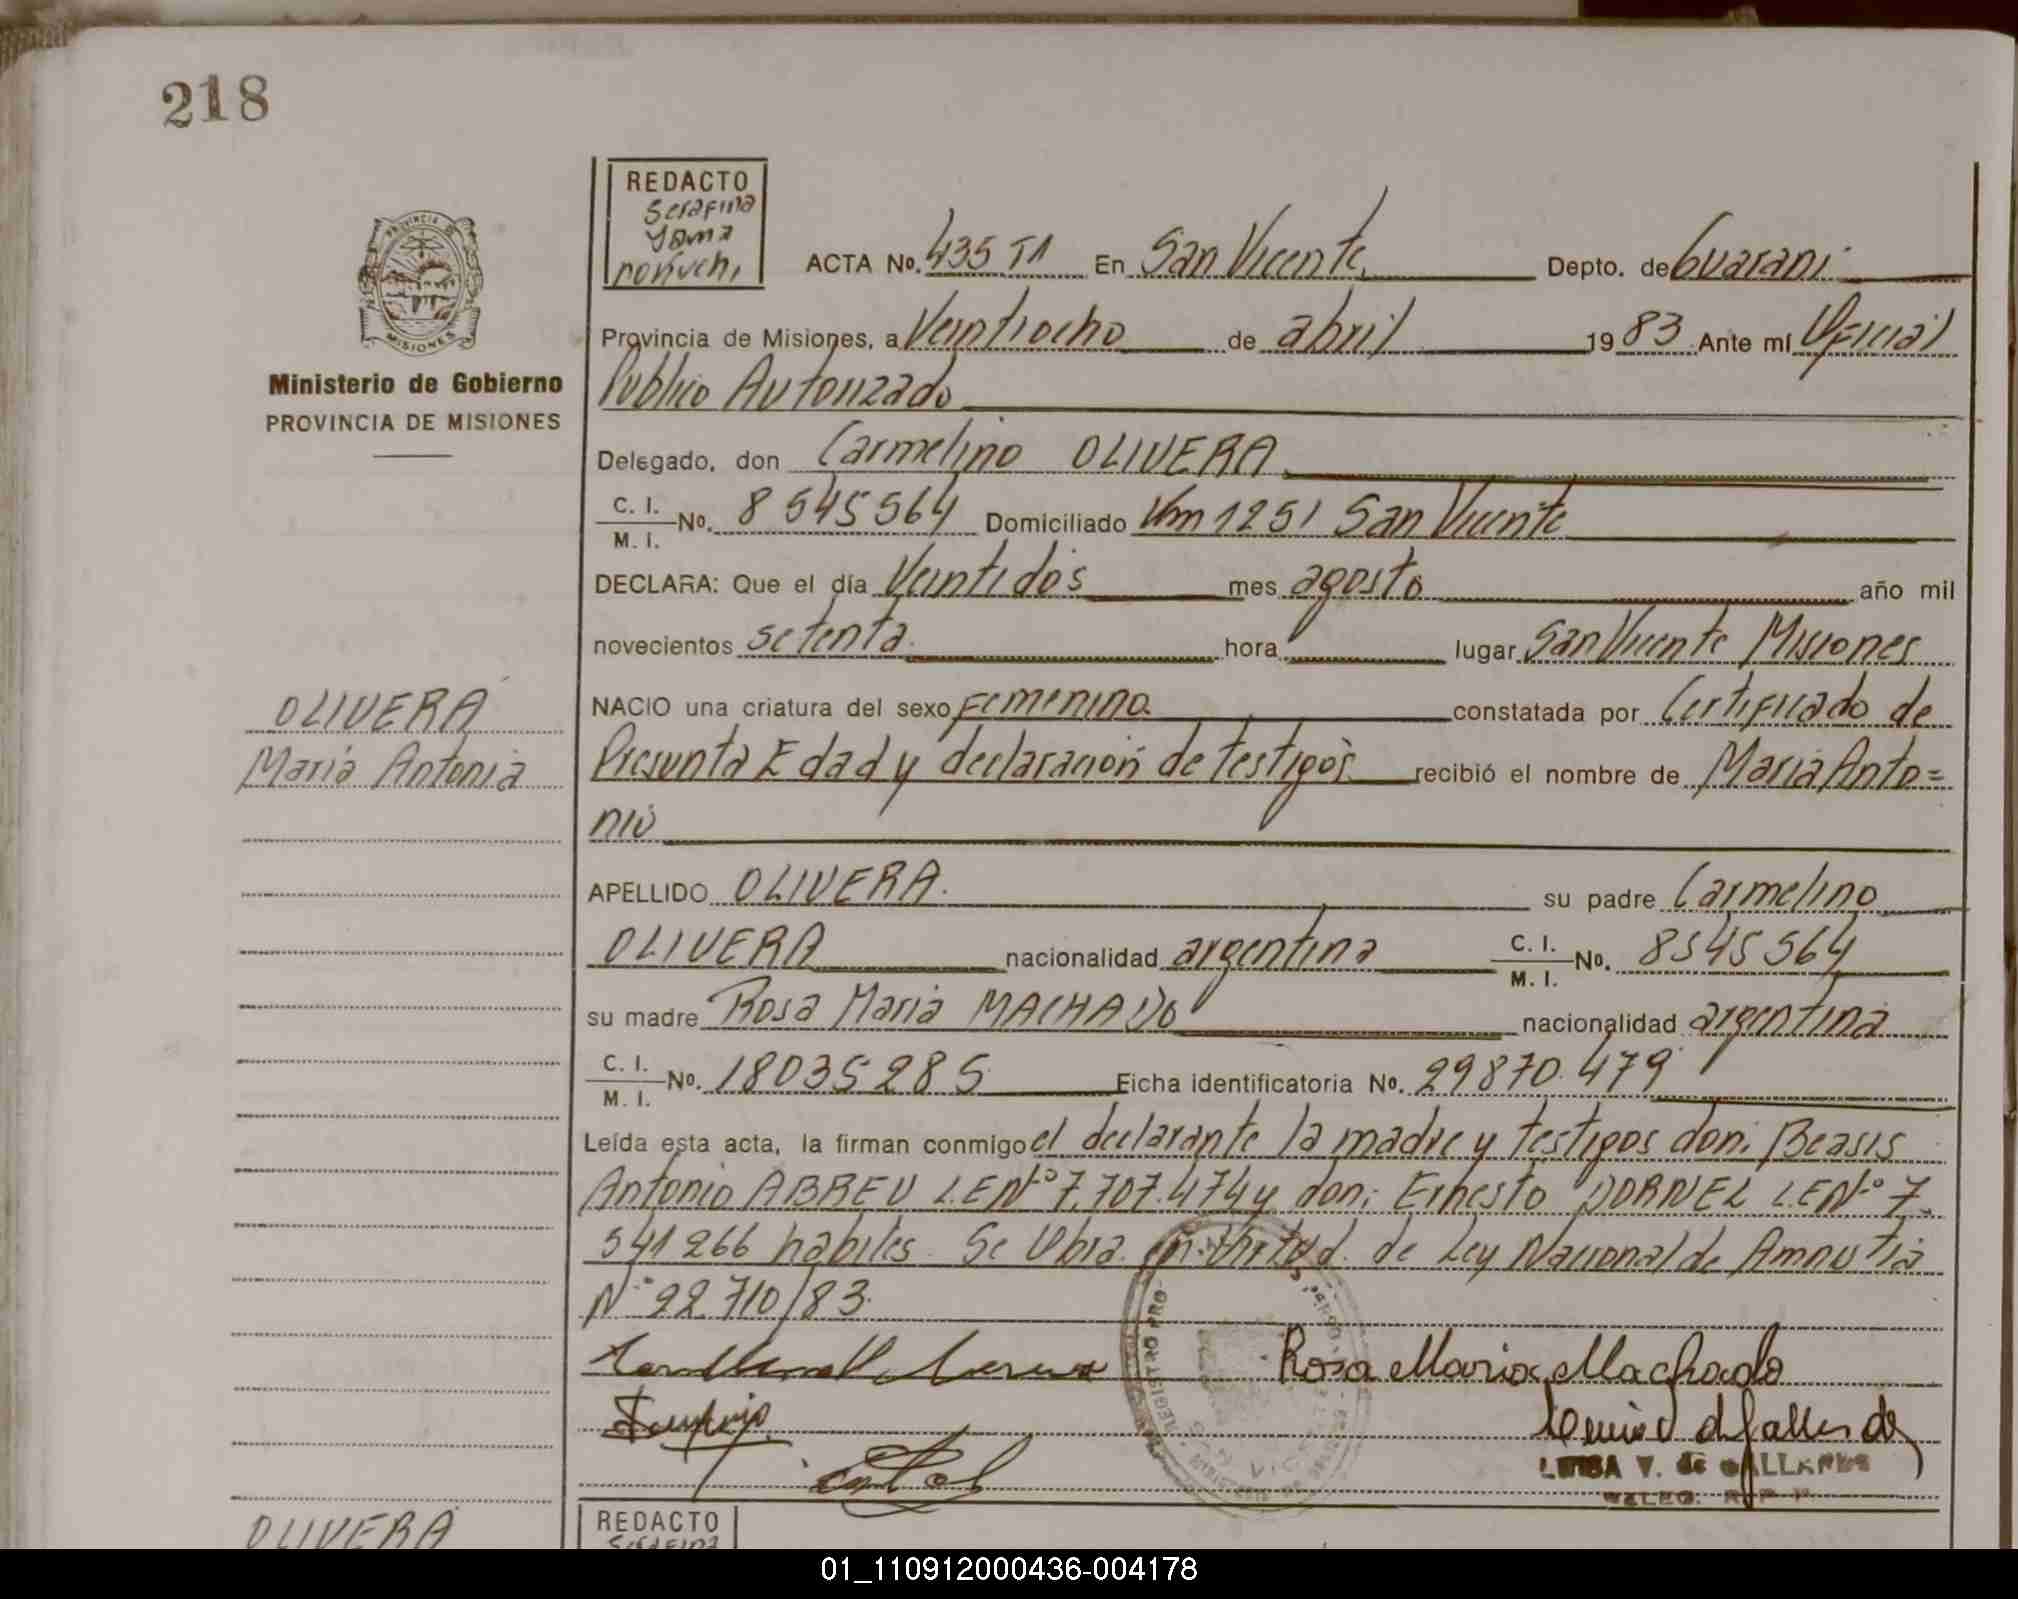 218
REDACTO
Serafina
Yama
ACTA No. 435 T1 En San Vicente Depto. de Guarani
PROVINCIA
MISIONES
Provincia de Misiones, a Veintiocho de abril 1983 Ante mí Oficial
Ministerio de Gobierno
PROVINCIA DE MISIONES
Publico Autorizado
Delegado, don Carmelino OLIVERA
C. I.
M. I. No. 8545564 Domiciliado Km 1251 San Vicente
DECLARA: Que el día Veintidos mes agosto año mil
novecientos setenta hora lugar San Vicente Misiones
OLIVERA
Maria Antonia
NACIO una criatura del sexo femenino constatada por Certificado de
Presunta Edad y declaración de testigos recibió el nombre de Maria Anto=
nia
APELLIDO OLIVERA. su padre Carmelino
OLIVERA nacionalidad argentina C. I.
M. I. No. 8545564
su madre Rosa Maria MACHADO nacionalidad argentina
C. I.
M. I. No. 18035285 Ficha identificatoria No. 29870.479
Leída esta acta, la firman conmigo el declarante la madre y testigos don: Beasis
Antonio ABREU L.E Nº 7.707.474 y don: Ernesto DORNEL L.E Nº 7.
541266 habiles. Se Obra en virtud de Ley Nacional de Amnistia
Nº 22.710/83.
Rosa Maria Machado
LUISA V. de GALLARDO
REGISTRO PRO
OLIVERA
REDACTO
Serafina
01_110912000436-004178